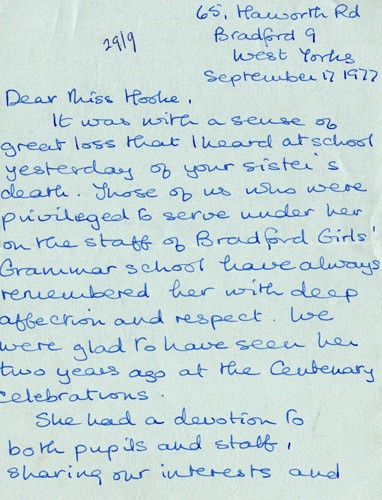 65, Haworth Rd
Bradford 9
29/9
West Yorks
September 17 1977
Dear Miss Hooke,
It was with a sense of
great loss that I heard at school
yesterday of your sister's
death. Those of us who were
privileged to serve under her
on the staff of Bradford Girls'
Grammar School have always
remembered her with deep
affection and respect. We
were glad to have seen her
two years ago at the Centenary
celebrations.
She had a devotion to
both pupils and staff,
sharing our interests and